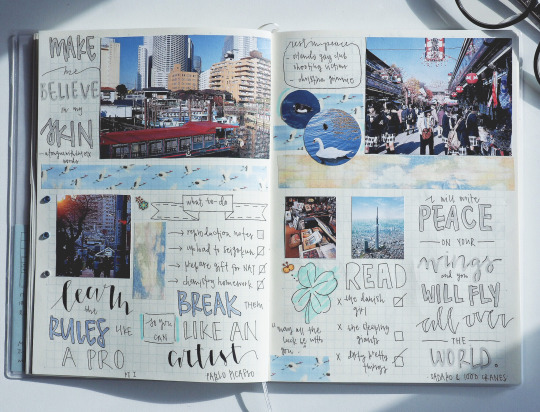 MAKE
me
BELIEVE
in my
SKIN
words
what to-do
→ reproduction notes
→ upload to
→ prepare gift for NAT
→ chemistry homework
learn
the
RULES LIKE
A PRO
so you
can
BREAK THEM
LIKE AN
artist
PT. 1
PABLO PICASSO
rest in peace
- orlando gay club
shooting victims
- christina grimmie
"may all the
luck be with
you
READ
x the danish
girl
x the sleeping
giants
x dirty pretty
things
I will write
PEACE
ON YOUR
wings
and you
WILL FLY
all over
THE
WORLD.
- SADAKO & 1000 CRANES